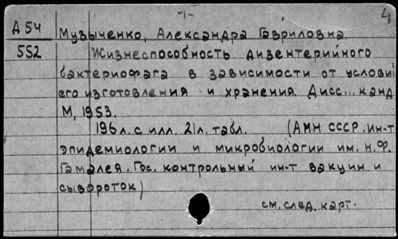 -1-
Д 54
552
Музыченко, Александра Гавриловна.
Жизнеспособность дизентерийного
бактериофага в зависимости от услови
его изготовления и хранения. Дисс... канд
М, 1953.
196 л. с илл. 21 л. табл. (АМН СССР. ин-т
эпидемиологии и микробиологии им. Н.Ф.
Гамалея. Гос. контрольный ин-т вакцин и
сывороток)
см. след. карт.